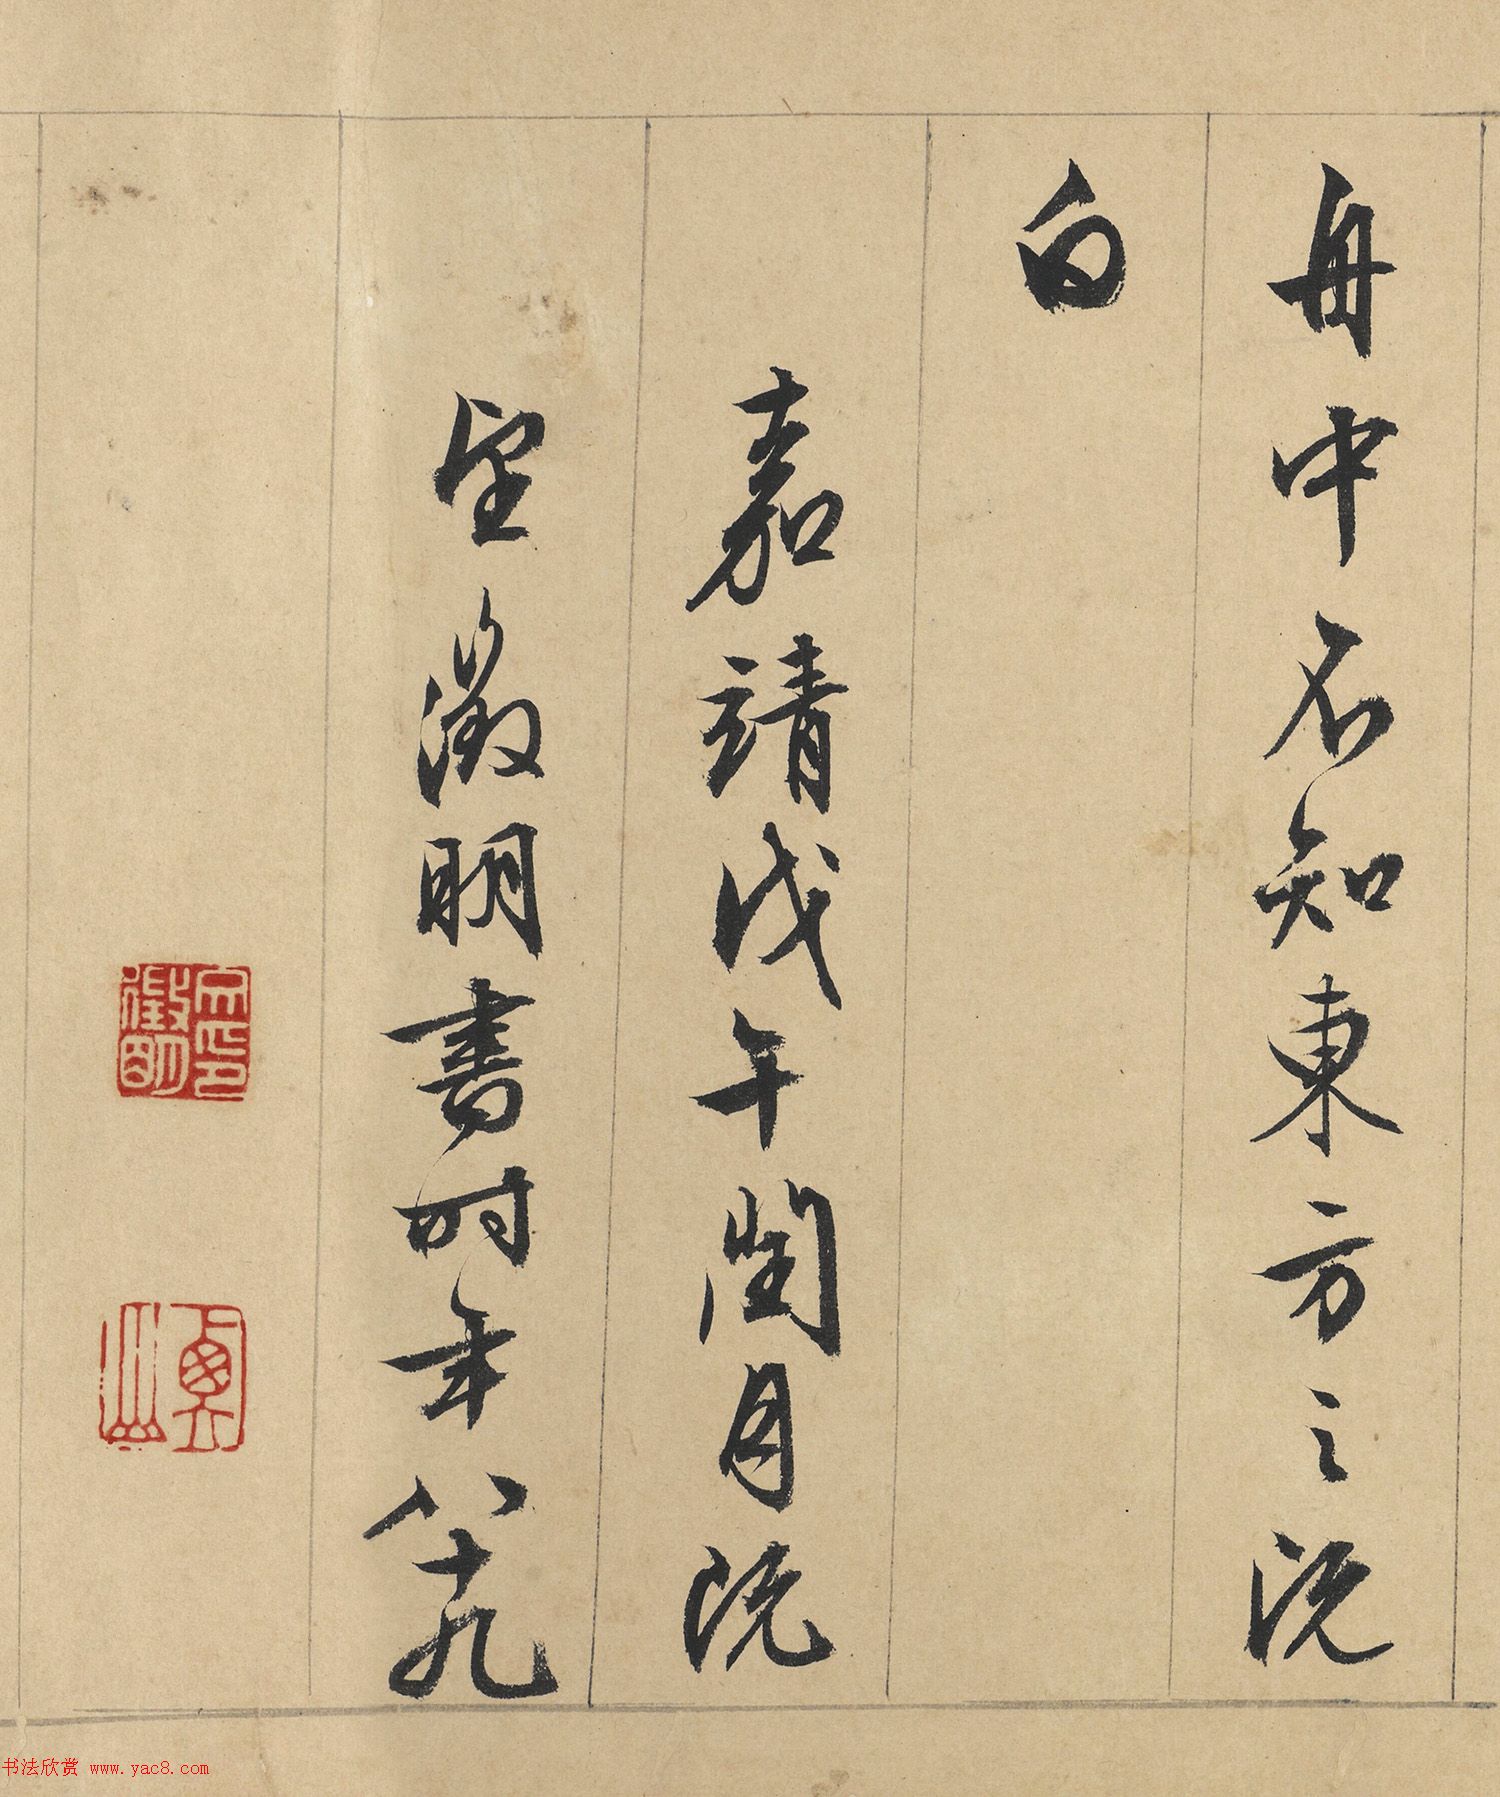 舟中不知東方之既
白
嘉靖戊午閏月既
望徵明書時年八十九
徵明印
衡山
书法欣赏 www.yac8.com